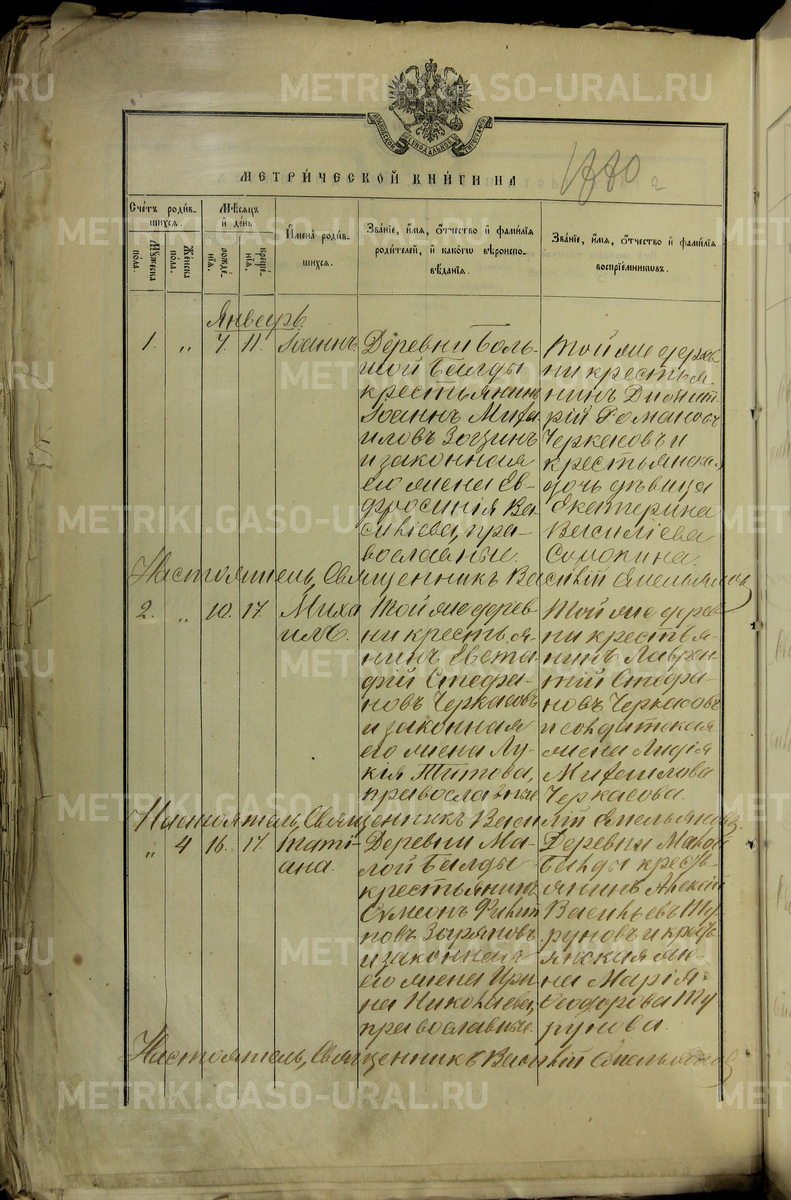 МОСКОВСКОЙ СѴНОДАЛЬНОЙ ТИПОГРАФІИ
МЕТРИ́ЧЕСКОЙ КНИ́ГИ НА 1880
Сче́тъ роди́в-
шихся.
Му́жеска
по́ла.
Же́нска
по́ла.
Мѣ́сяцъ
и҆ де́нь
рожде́-
нїѧ.
креще́-
нїѧ.
И҆мена̀ роди́в-
шихся.
Зва́нїе, и҆́мѧ, ѻ҆́тчество и҆ фами́лїѧ
роди́телей, и҆ како́гѡ вѣроиспо-
вѣ́данїѧ.
Зва́нїе, и҆́мѧ, ѻ҆́тчество и҆ фами́лїѧ
воспрїе́мникѡвъ.
Январь
1. „ 7. 11. Іоаннъ
Деревни Боль-
шой Балды
крестьянинъ
Іоаннъ Миха-
иловъ
и законная
его жена Ев-
фросинія Ва-
силіева, пра-
вославные.
Той же дерев-
ни крестья-
нинъ Димит-
рій Романовъ
Черкасовъ и
крестьянская
дочь дѣвица
Екатерина
Василіева
Сорокина.
Настоятель, Священникъ Василій Емельяновъ
2. „ 10. 17. Миха-
илъ.
Той же дерев-
ни крестья-
нинъ Евста-
фій Стефа-
новъ Черкасовъ
и законная
его жена Лу-
кія Титова,
православные
Той же дерев-
ни крестья-
нинъ Лаврен-
тій Стефа-
новъ Черкасовъ
и солдатская
жена Лидія
Михаилова
Черкасова.
Настоятель, Священникъ Василій Емельяновъ.
„ 4 16. 17. Таті-
ана.
Деревни Ма-
лой Балды
крестьянинъ
Сѵмеонъ Филип-
повъ Зыряновъ
и законная
его жена Ири-
на Николаева,
православные
Деревни Малой
Балды кресть-
янинъ Алексій
Васильевъ Ту-
руновъ и кресть-
янская же-
на Марія
Ѳеодорова Ту-
рунова.
Настоятель, Священникъ Василій Емельяновъ
METRIKI.GASO-URAL.RU